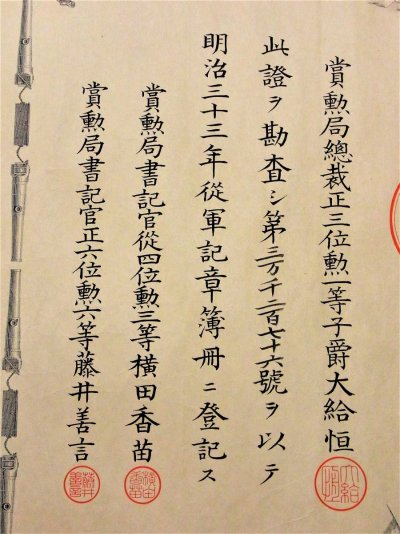 賞勲局總裁正三位勲一等子爵大給恒
此證ヲ勘査シ第三万千二百七十六號ヲ以テ
明治三十三年從軍記章簿冊ニ登記ス
賞勲局書記官從四位勲三等横田香苗
賞勲局書記官正六位勲六等藤井善言